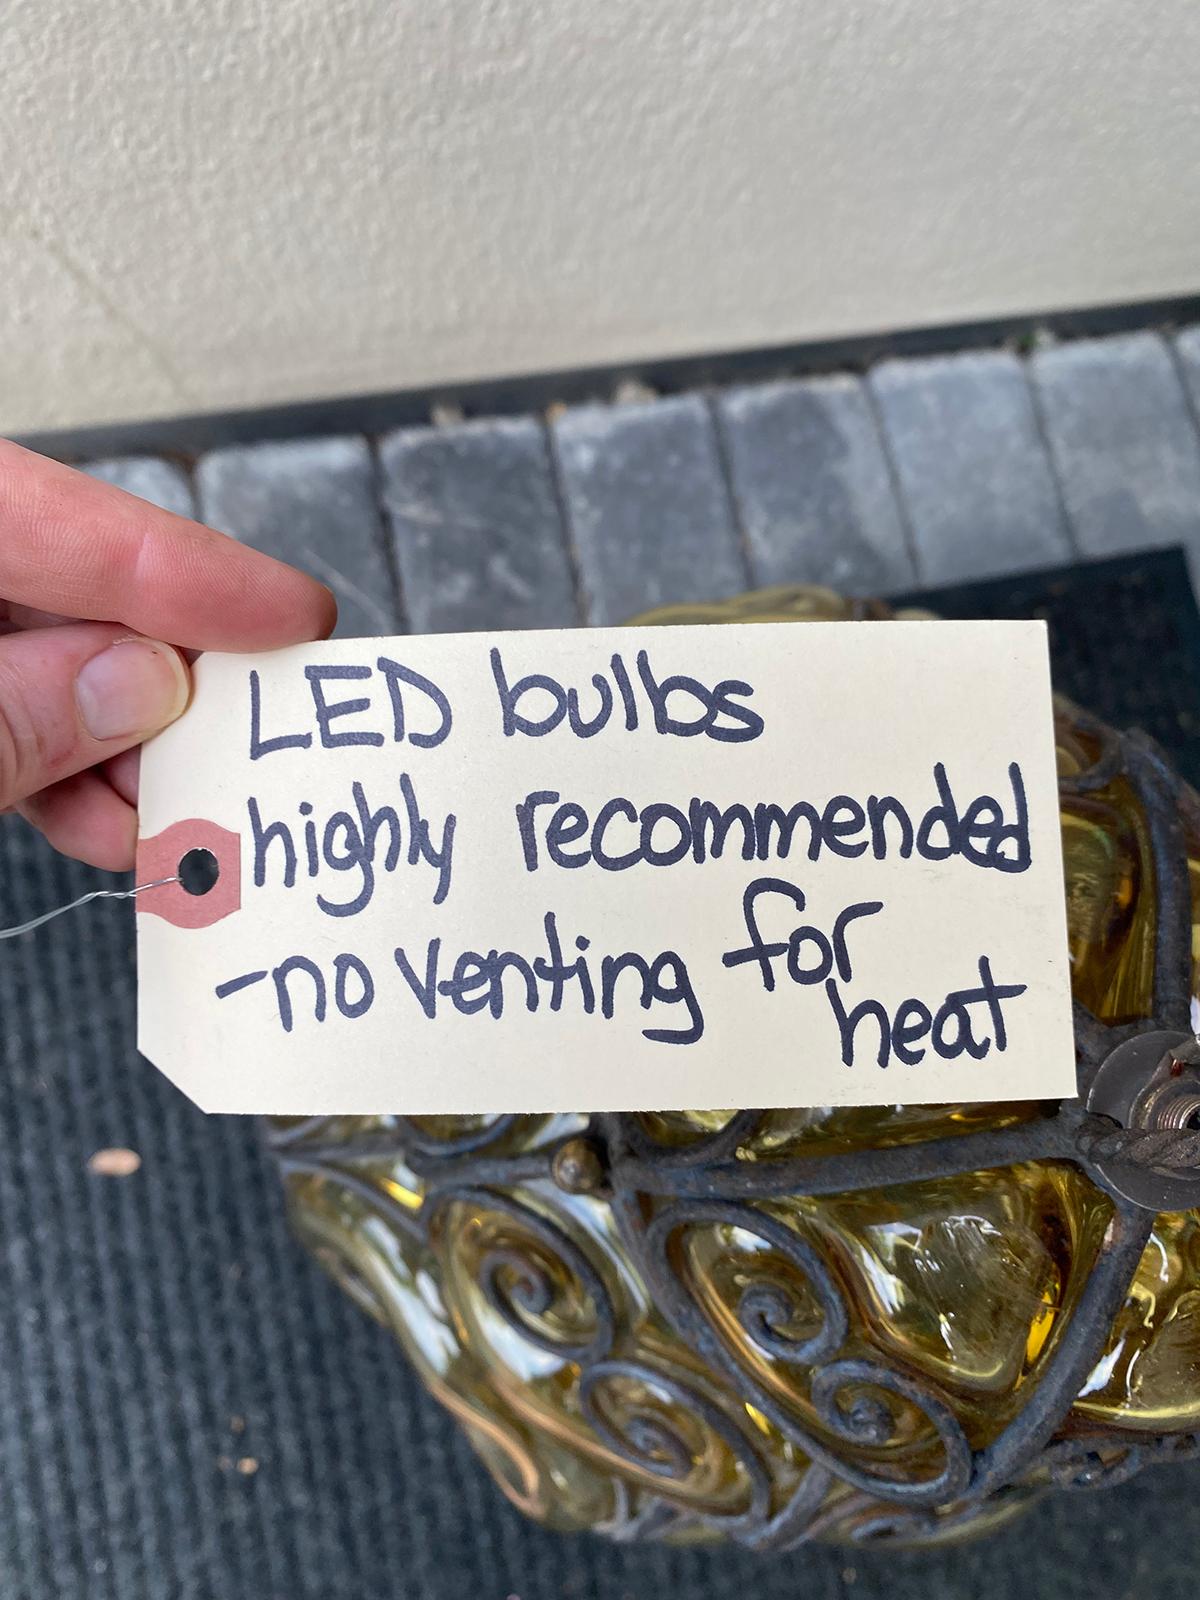 LED bulbs
highly recommended
-no venting for
heat